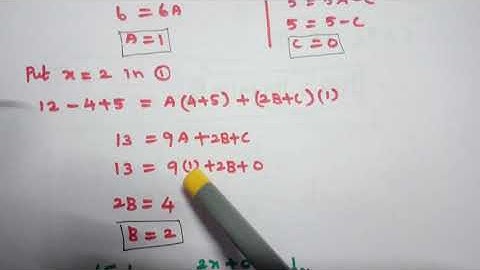 6 = 6A
A = 1
5 = 5A-C
5 = 5-C
C = 0
Put x = 2 in ①
12-4+5 = A(4+5) + (2B+C)(1)
13 = 9A+2B+C
13 = 9(1)+2B+0
2B = 4
B = 2
2x+